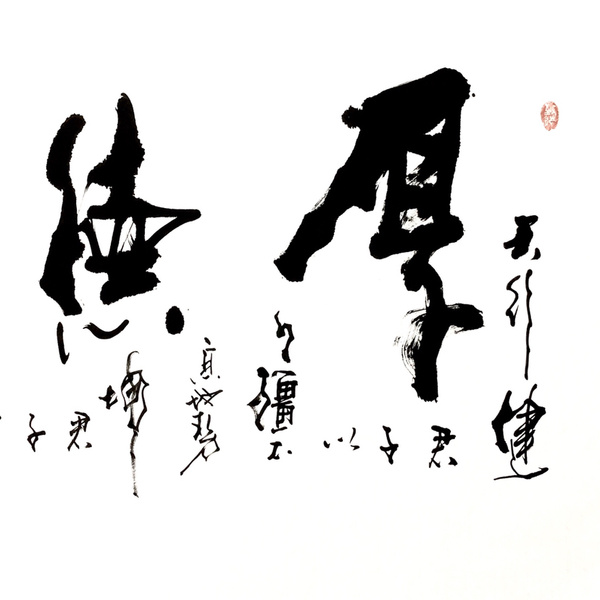 厚德
天行健
君子以
自彊不
息地勢
坤
君子